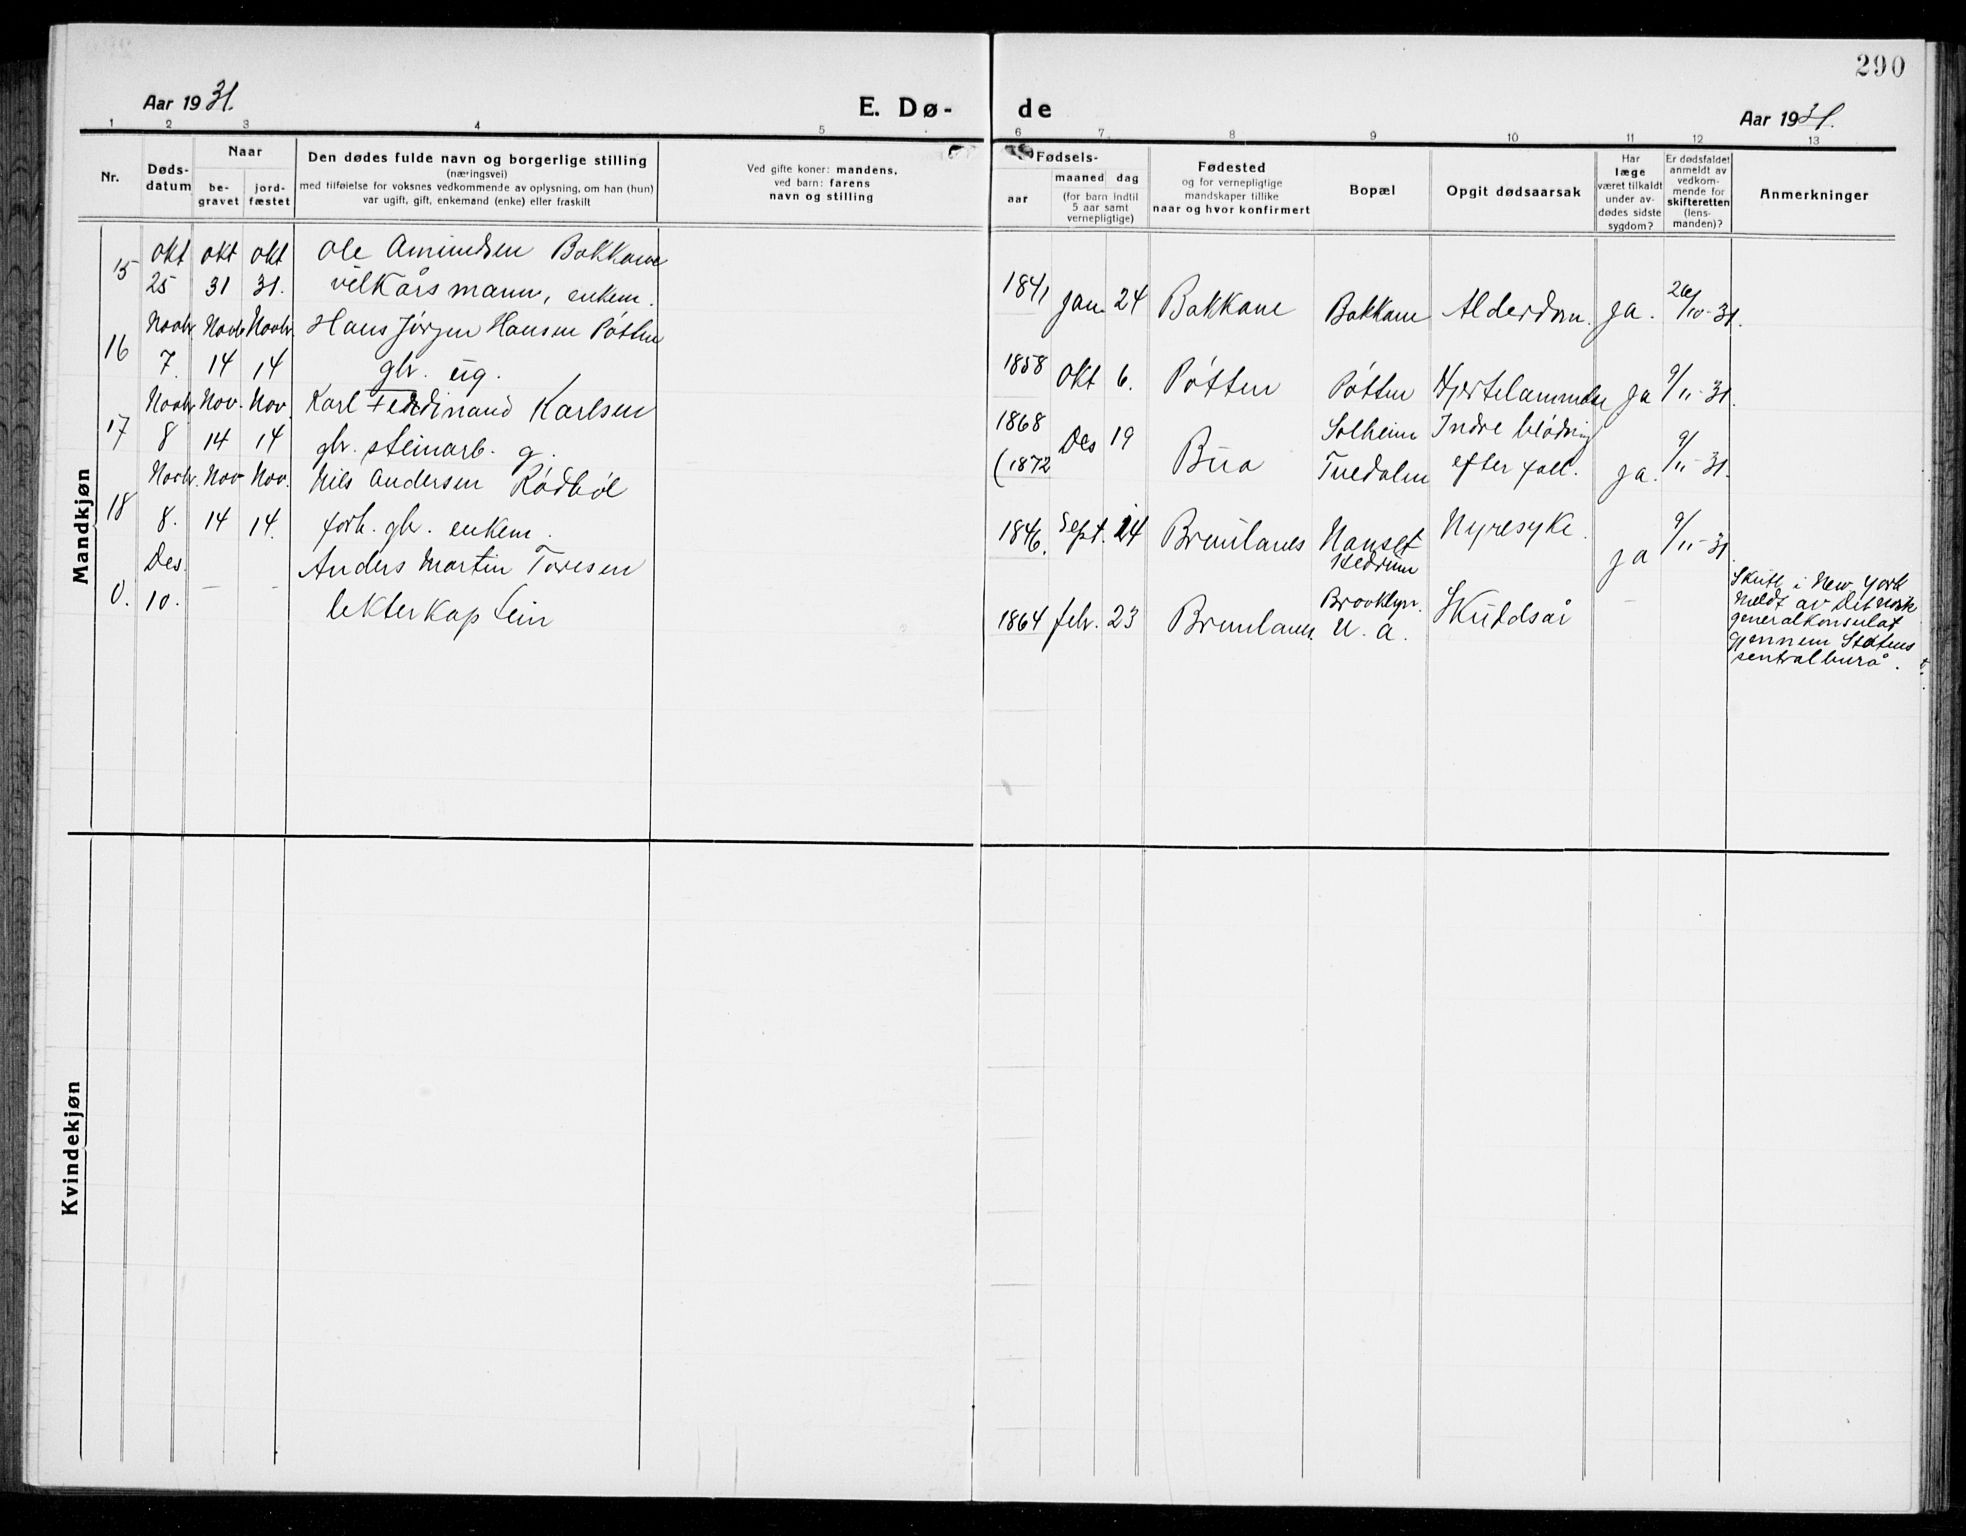 290
Aar 1931.
E. Dø-
de
Aar 1931.
1 2 3 4 5 6 7 8 9 10 11 12 13
Nr.
Døds-
datum
Naar
be-
gravet
jord-
fæstet
Den dødes fulde navn og borgerlige stilling
(næringsvei)
med tilføielse for voksnes vedkommende av oplysning, om han (hun)
var ugift, gift, enkemand (enke) eller fraskilt
Ved gifte koner: mandens,
ved barn: farens
navn og stilling
Fødsels-
aar
maaned dag
(for barn indtil
5 aar samt
vernepligtige)
Fødested
og for vernepligtige
mandskaper tillike
naar og hvor konfirmert
Bopæl
Opgit dødsaarsak
Har
læge
været tilkaldt
under av-
dødes sidste
sygdom?
Er dødsfaldet
anmeldt av
vedkom-
mende for
skifteretten
(lens-
manden)?
Anmerkninger
Mandkjøn
okt okt okt Ole Amundsen Bakkane
15 25 31 31. vilkårsmann, enkem.
1841 jan. 24 Bakkane Bakkane Alderdom. ja. 26/10-31.
Novbr. Novbr Novbr. Hans Jørgen Hansen Pøtten
16 7. 14 14 gbr. ug.
1858 okt 6. Pøtten Pøtten Hjertelammelse ja 9/11-31.
Novbr Nov. Nov. Karl Ferdinand Karlsen
17 8 14 14 gbr. steinarb. g.
1868 Des 19 Solheim Indre blødning
(1872 Bua Tvedalen efter fall. ja. 9/11-31.
Novbr. Nov. Nov. Nils Andersen Rødbøl
18 8. 14 14. forh. gbr. enkem.
1846. Sept. 24 Brunlanes Nanset Nyresyke. ja 9/11-31
Hedrum
Des. Anders Martin Toresen
0. 10. — — lekterkaptein
1864 febr. 23 Brunlanes Brooklyn. Skuddsår —
U. a.
Skutt i New York
Meldt av Det norsk
generalkonsulat
gjennem Statens
sentralburå.
Kvindekjøn